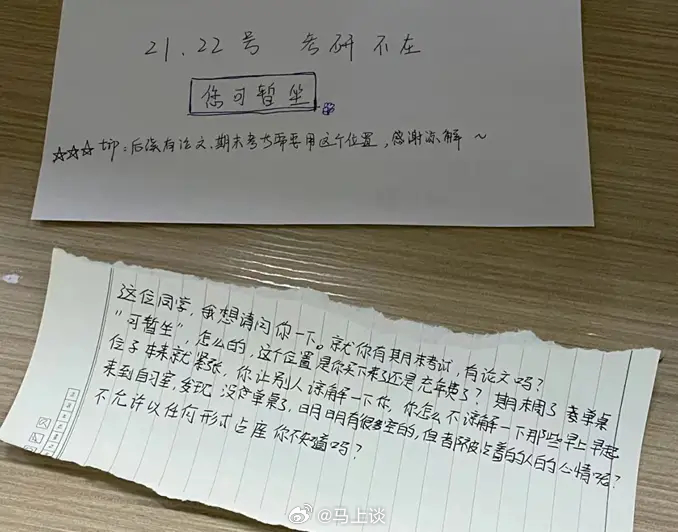 21.22号 考研不在
您可暂坐
☆☆☆ tip:后续有论文、期末考试等要用这个位置,感谢谅解~
这位同学,我想请问你一下。就你有期末考试,有论文吗?
“可暂坐”,怎么的,这个位置是你买下来了还是充年费了?期末周了 套单桌
位子本来就紧张,你让别人谅解一下你,你怎么不谅解一下那些早上早起
来到自习室,发现 没空单桌了,明明有很多空的,但都被占着的人的心情呢?
不允许以任何形式占座 你不知道吗?
@马上谈